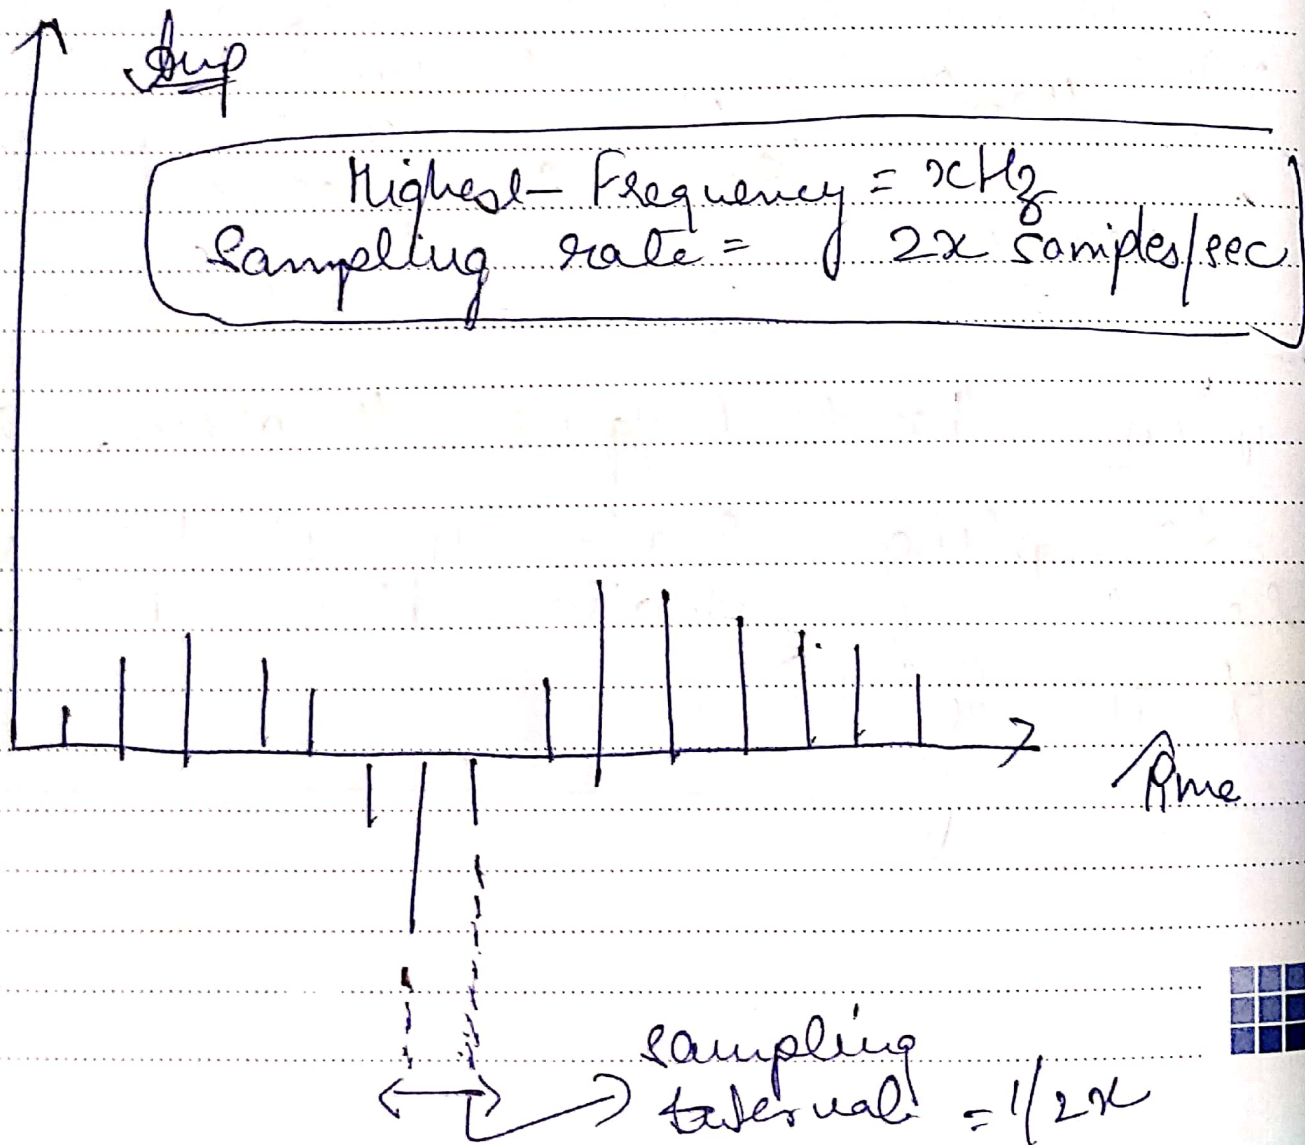 Amp
Highest Frequency = xHz
Sampling rate = 2x samples/sec
Time
sampling
Interval = 1/2x